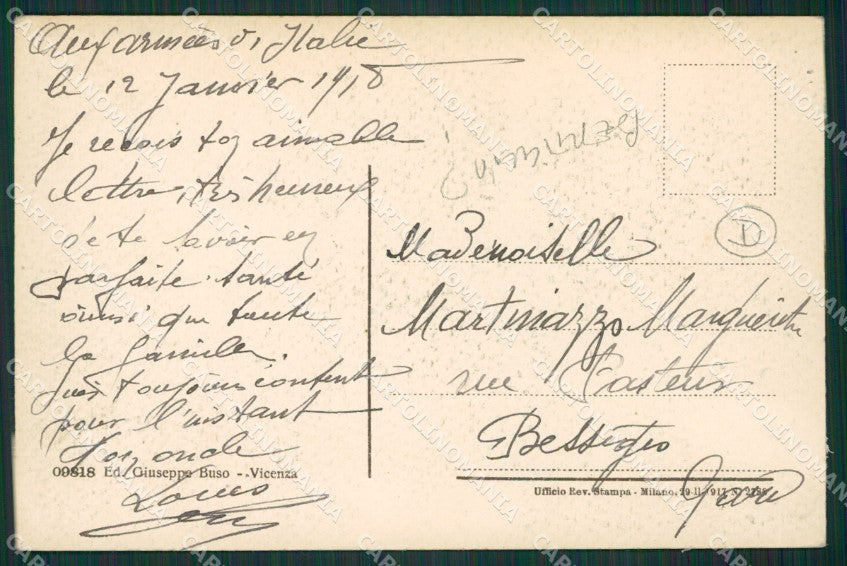 Aux armées d'Italie
le 12 Janvier 1918
Je reçois ton aimable
lettre, très heureux
de te savoir en
parfaite santé
ainsi que toute
la famille.
suis toujours content
pour l'instant
Ton oncle
Louis
09818 Ed. Giuseppe Buso - Vicenza
D
Mademoiselle
Martinazzo Marguerite
rue Pasteur
Bessèges
Gard
Ufficio Rev. Stampa - Milano,
CARTOLINOMANIA